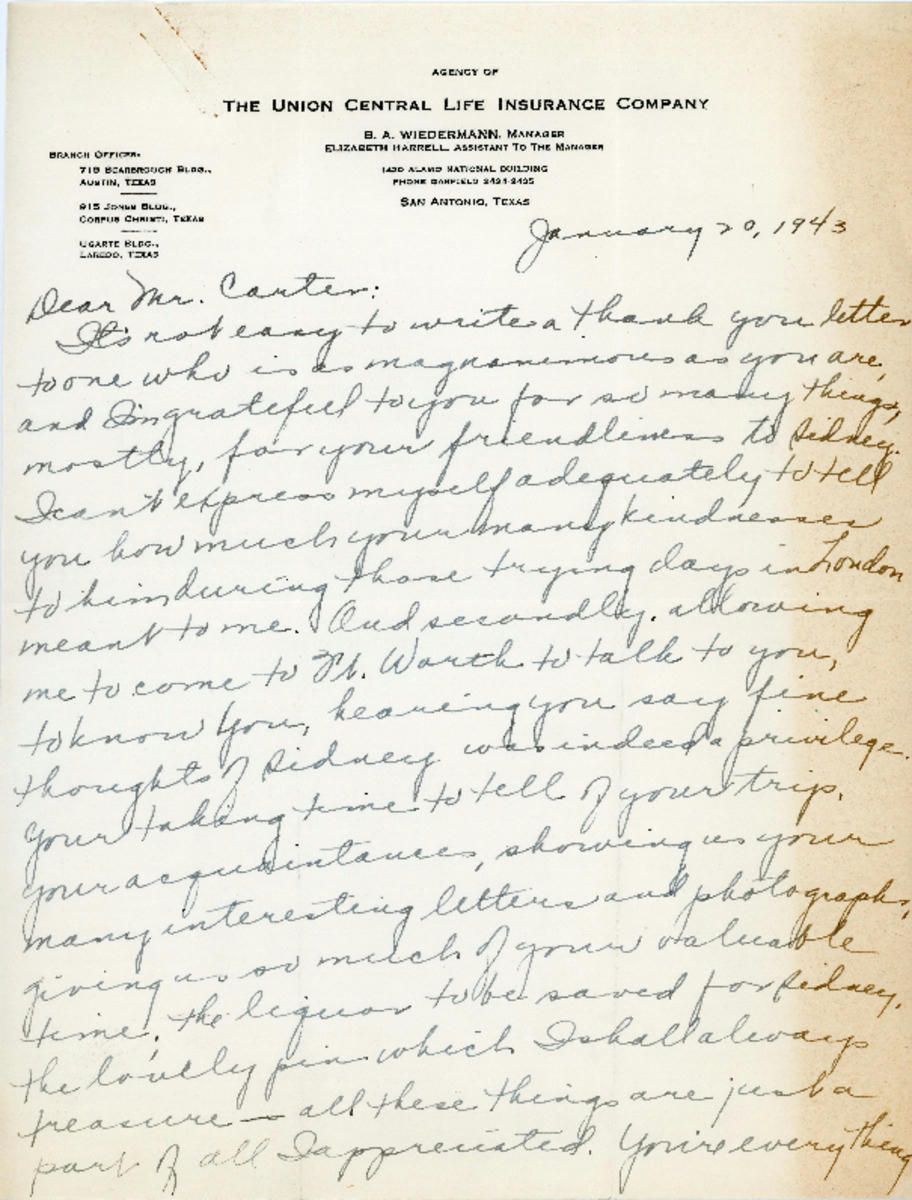 AGENCY OF
THE UNION CENTRAL LIFE INSURANCE COMPANY
B. A. WIEDERMANN, MANAGER
ELIZABETH HARRELL, ASSISTANT TO THE MANAGER
1420 ALAMO NATIONAL BUILDING
PHONE GARFIELD 2424-2425
SAN ANTONIO, TEXAS
BRANCH OFFICES:
718 SCARBROUGH BLDG.,
AUSTIN, TEXAS
915 JONES BLDG.,
CORPUS CHRISTI, TEXAS
UGARTE BLDG.,
LAREDO, TEXAS
January 20, 1943
Dear Mr. Carter:
It's not easy to write a thank you letter
to one who is as magnanimous as you are,
and I'm grateful to you for so many things,
mostly, for your friendliness to Sidney.
I can't express myself adequately to tell
you how much your many kindnesses
to him during those trying days in London
meant to me. And secondly, allowing
me to come to Ft. Worth to talk to you,
to know you, hearing you say fine
thoughts of Sidney was indeed a privilege.
Your taking time to tell of your trip,
your acquaintances, showing us your
many interesting letters and photographs,
giving us so much of your valuable
time, the liquor to be saved for Sidney,
the lovely pin which I shall always
treasure — all these things are just a
part of all I appreciated. You're everything